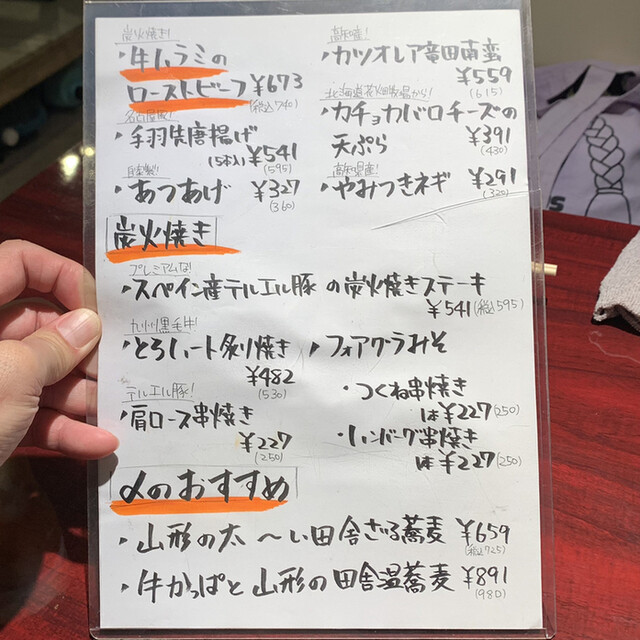 炭火焼き!
・牛ハラミの
ローストビーフ ¥673
(税込740)
名古屋
・手羽先唐揚げ
(5本入) ¥541
(595)
自家製!
・あつあげ ¥327
(360)
・カツオレア竜田南蛮
¥559
(615)
北海道花畑牧場から!
・カチョカバロチーズの
天ぷら ¥391
(430)
高知県産!
・やみつきネギ ¥291
(320)
炭火焼き
プレミアムな!
・スペイン産テルエル豚の炭火焼きステーキ
¥541(税込595)
九州黒毛牛!
・とろハート炙り焼き
¥482
(530)
テルエル豚!
・肩ロース串焼き
¥227
(250)
・フォアグラみそ
・つくね串焼き
1本¥227(250)
・ハンバーグ串焼き
1本¥227(250)
〆のおすすめ
・山形の太〜い田舎ざる蕎麦 ¥659
(税込725)
・牛かっぱと山形の田舎温蕎麦 ¥891
(980)